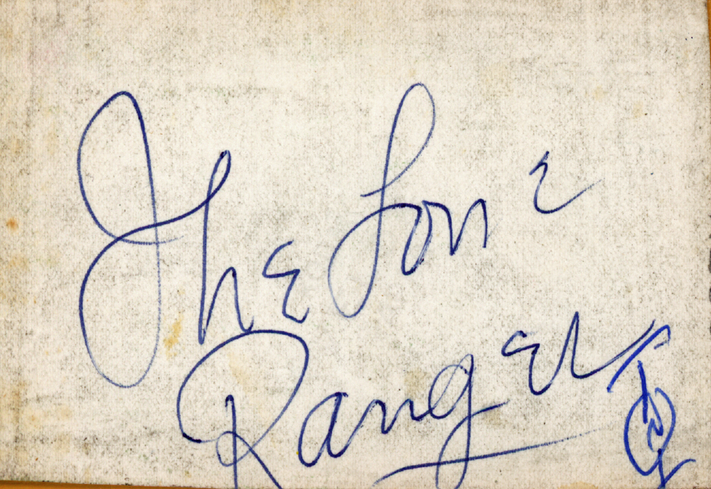 The Lone
Ranger